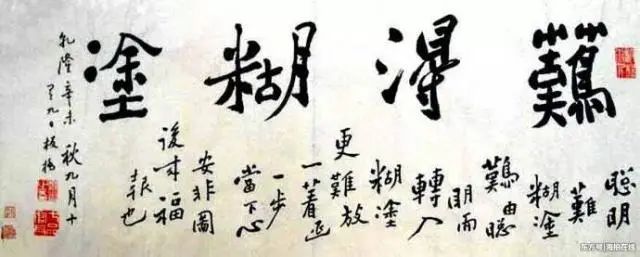 難得糊塗
聰明
難
糊塗
難由聰
明而
轉入
糊塗
更難放
一著退
一步
當下心
安非圖
後來福
報也
乾隆辛未秋九月十
有九日板橋
东方号/海拍在线